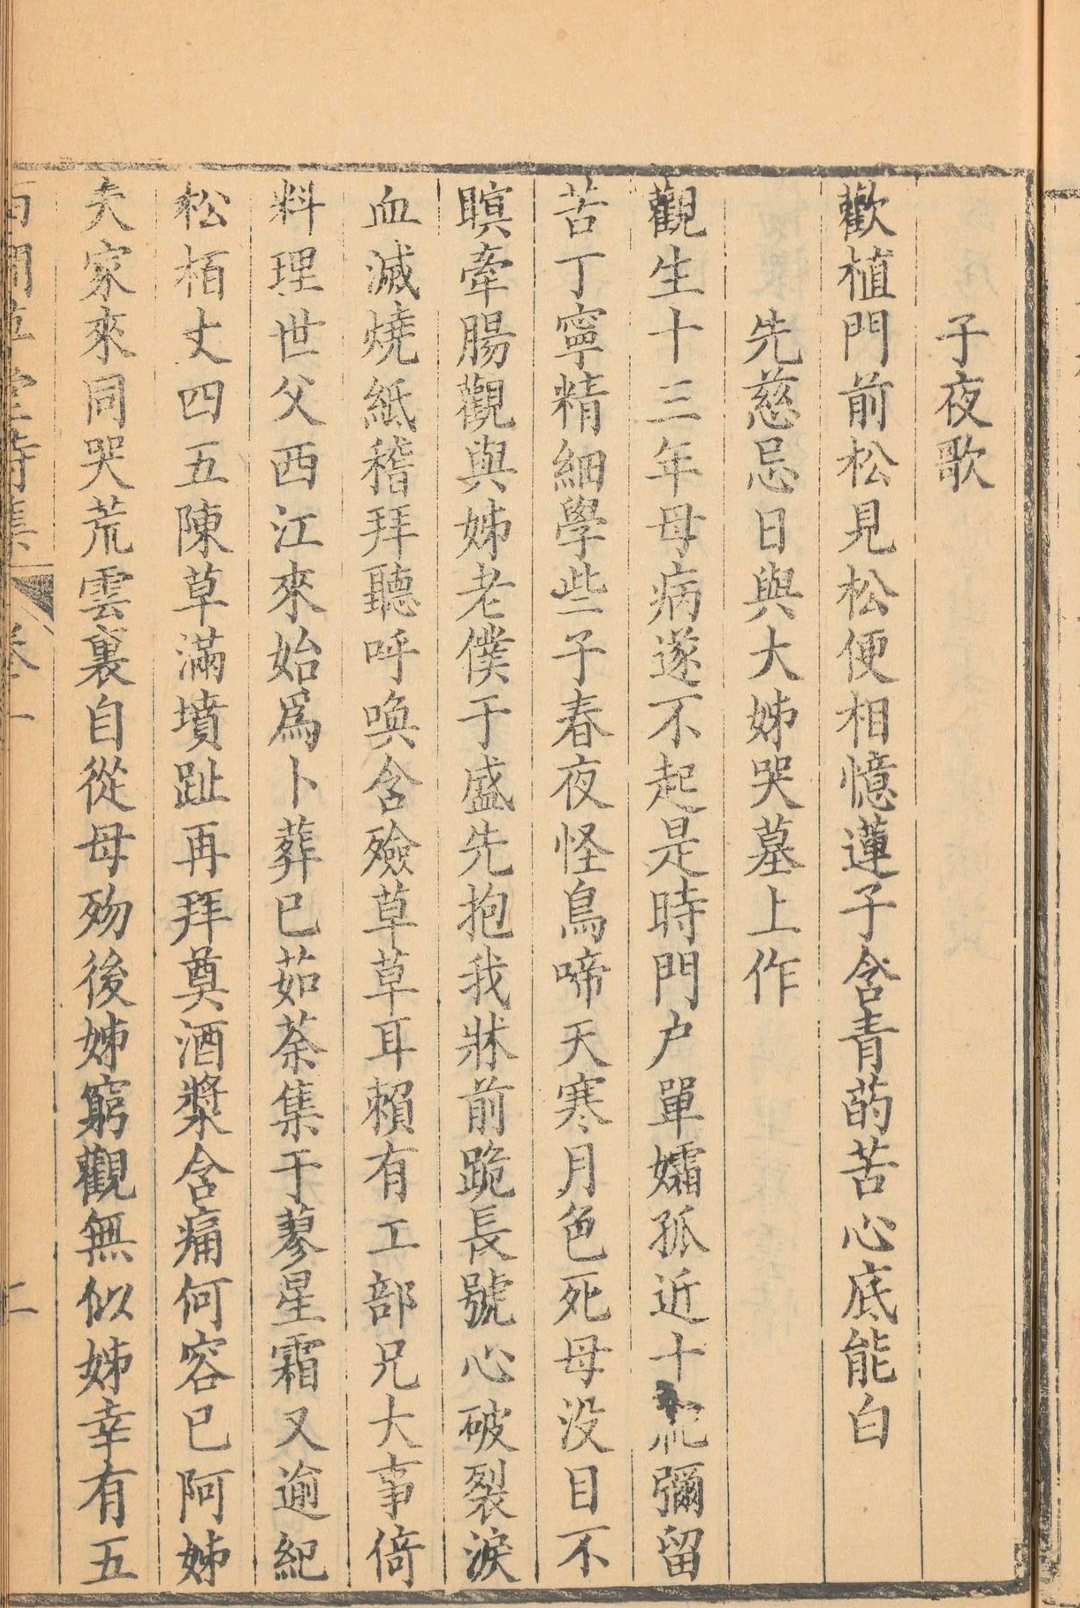 子夜歌
歡植門前松見松便相憶蓮子含青菂苦心底能白
先慈忌日與大姊哭墓上作
觀生十三年母病遂不起是時門户單孀孤近十紀彌留
苦丁寧精細學些子春夜怪鳥啼天寒月色死母没目不
瞑牽腸觀與姊老僕于盛先抱我牀前跪長號心破裂淚
血滅燒紙稽拜聽呼喚含殮草草耳賴有工部兄大事倚
料理世父西江來始爲卜葬已茹荼集于蓼星霜又逾紀
松栢丈四五陳草滿墳趾再拜奠酒漿含痛何容已阿姊
夫家來同哭荒雲裏自從母歿後姊窮觀無似姊幸有五
草堂詩集 卷一 二